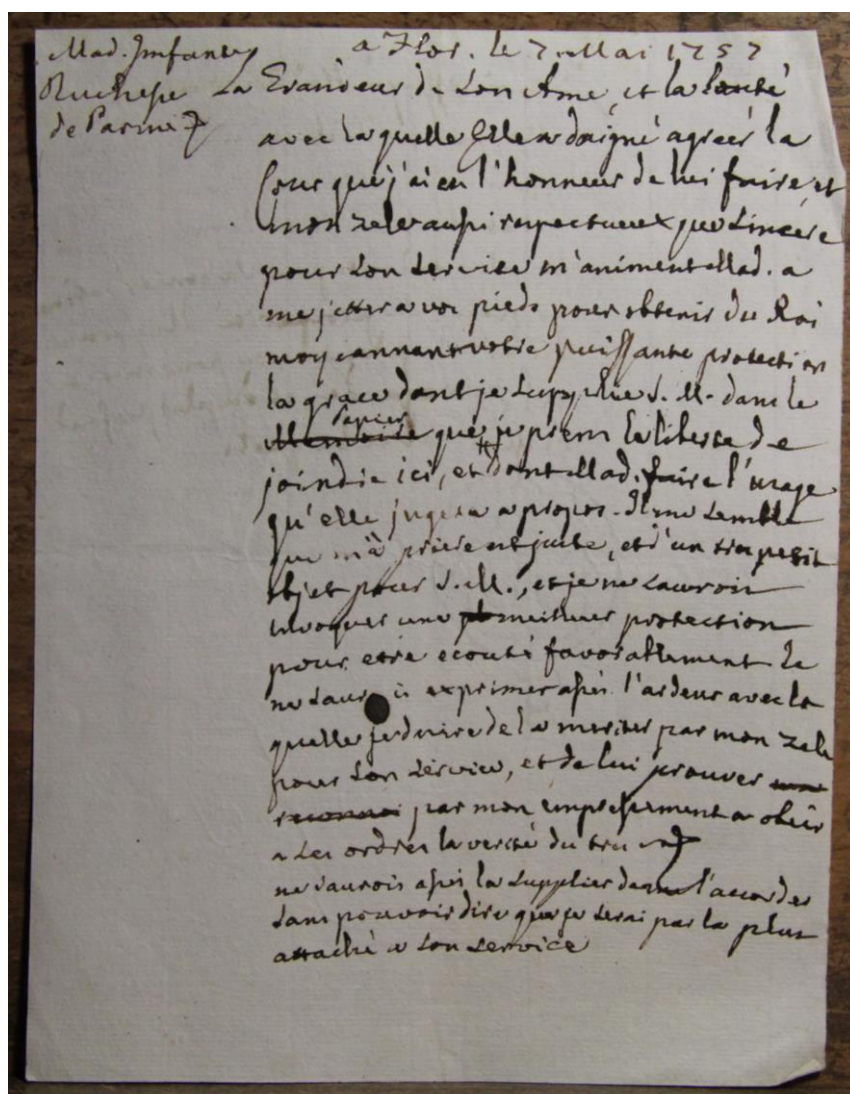 Mad. Imfante
Duchesse
de Parme
a Flor. le 7. Mai 1757
La Grandeur de son Ame, et la bonté
avec laquelle Elle a daigné agréér la
Cour que j'ai eu l'honneur de lui faire et
mon zele aussi respectueux que sincère
pour son service m'animent Mad. a
me jetter a vos pieds pour obtenir du Roi
moyennant votre puissante protection
la grace dont je supplie S. M. dans le
Memoire Papier que je prens la liberté de
joindre ici, et dont Mad. faire l'usage
qu'elle jugera a propos. Il me semble
que ma priere est juste, et d'un tres petit
objet pour S. M., et je ne saurois
invoquer une meilleure protection
pour etre ecouté favorablement. Je
ne saurois exprimer assés l'ardeur avec la
quelle je desire de la meriter par mon zele
pour son service, et de lui prouver
reconnoi par mon empressement a obeir
a ses ordres la verité du
ne saurois assés la supplier de l'accorder
sans pouvoir dire que je serai par la plus
attaché a son service